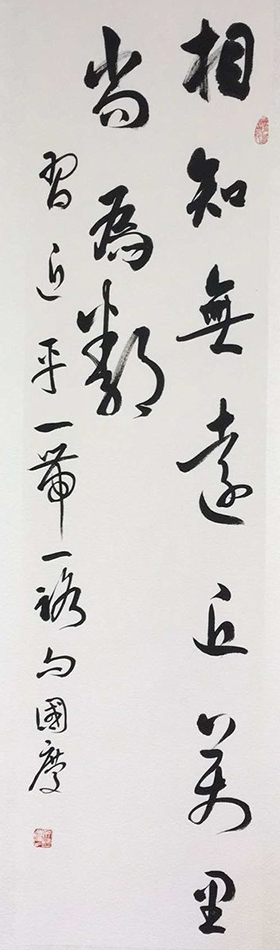 相知無遠近萬里
尚為鄰
習近平一帶一路句國慶